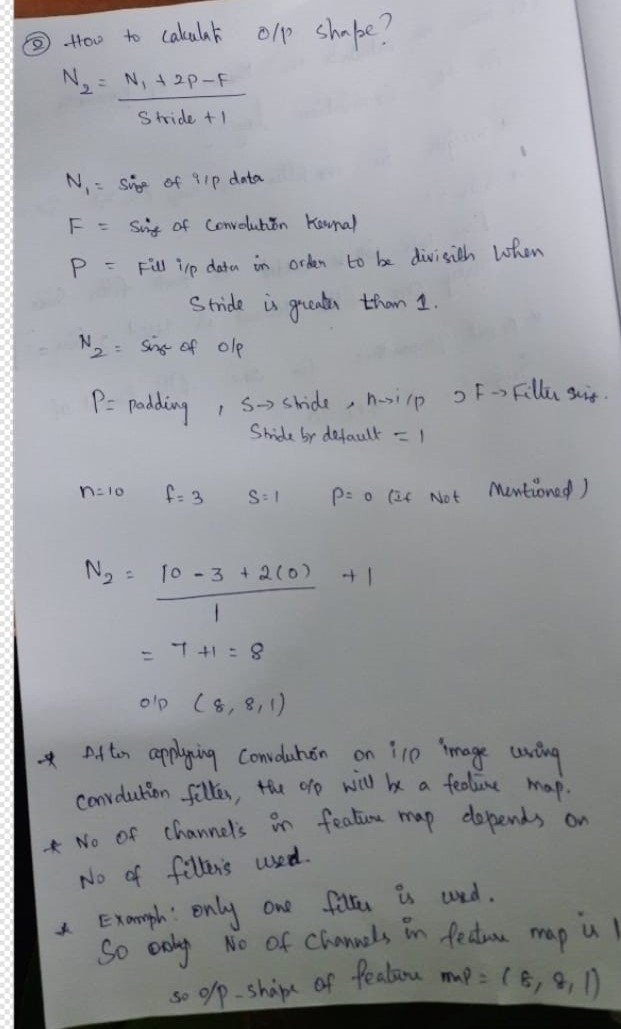 ② How to calculate o/p shape?
N₂ = N₁ + 2P - F
Stride + 1
N₁ = Size of i/p data
F = Size of Convolution Kernal
P = Fill i/p data in order to be divisible when
Stride is greater than 1.
N₂ = Size of o/p
P = padding , S → stride , n → i/p , F → Filter size.
Stride by default = 1
n=10 f=3 S=1 P=0 (if Not Mentioned)
N₂ = 10 - 3 + 2(0) + 1
1
= 7 + 1 = 8
o/p (8, 8, 1)
* After applying convolution on i/p image using
convolution filter, the o/p will be a feature map.
* No of channels in feature map depends on
No of filters used.
* Example: only one filter is used.
So only No of channels in feature map is 1
so o/p - shape of feature map = (8, 8, 1)